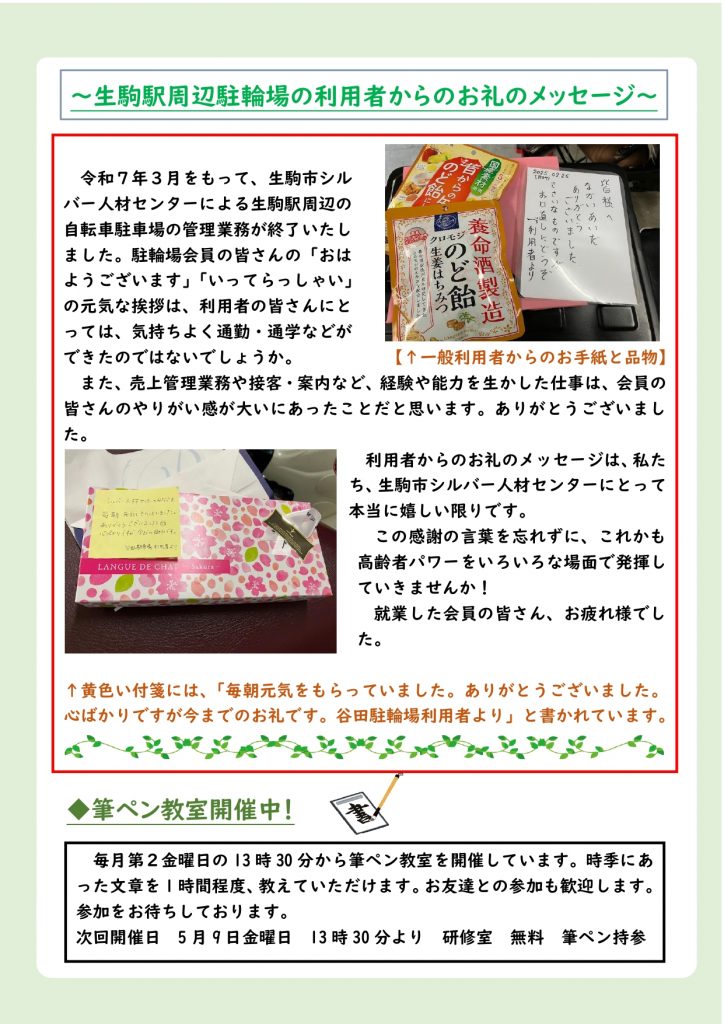 ～生駒駅周辺駐輪場の利用者からのお礼のメッセージ～
令和７年３月をもって、生駒市シル
バー人材センターによる生駒駅周辺の
自転車駐車場の管理業務が終了いたし
ました。駐輪場会員の皆さんの「おは
ようございます」「いってらっしゃい」
の元気な挨拶は、利用者の皆さんにと
っては、気持ちよく通勤・通学などが
できたのではないでしょうか。
国産素材
昔からの
のど飴
養命酒製造
クロモジ
のど飴
生姜はちみつ
皆様へ
ながいあいだ
ありがとう
ございました
利用者より
【↑一般利用者からのお手紙と品物】
また、売上管理業務や接客・案内など、経験や能力を生かした仕事は、会員の
皆さんのやりがい感が大いにあったことだと思います。ありがとうございまし
た。
LANGUE DE CHAT ～Sakura～
利用者からのお礼のメッセージは、私た
ち、生駒市シルバー人材センターにとって
本当に嬉しい限りです。
この感謝の言葉を忘れずに、これかも
高齢者パワーをいろいろな場面で発揮し
ていきませんか！
就業した会員の皆さん、お疲れ様でし
た。
↑黄色い付箋には、「毎朝元気をもらっていました。ありがとうございました。
心ばかりですが今までのお礼です。谷田駐輪場利用者より」と書かれています。
◆筆ペン教室開催中！
書
毎月第２金曜日の13時30分から筆ペン教室を開催しています。時季にあ
った文章を１時間程度、教えていただけます。お友達との参加も歓迎します。
参加をお待ちしております。
次回開催日　５月９日金曜日　13時30分より　研修室　無料　筆ペン持参